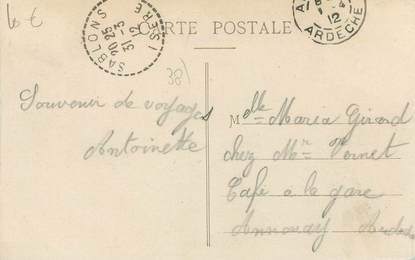 4 €
SABLONS
20 25
31 -3
12
ISÈRE
CARTE POSTALE
12
ARDÈCHE
(38)
Souvenir de voyages
Antoinette
Mlle Maria Girard
chez Mr Vernet
Café à la gare
Annonay Ardèche